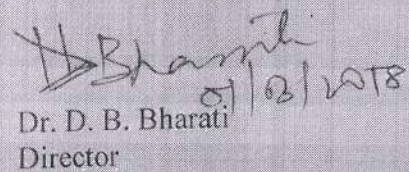 DBharati
01/03/2018
Dr. D. B. Bharati
Director